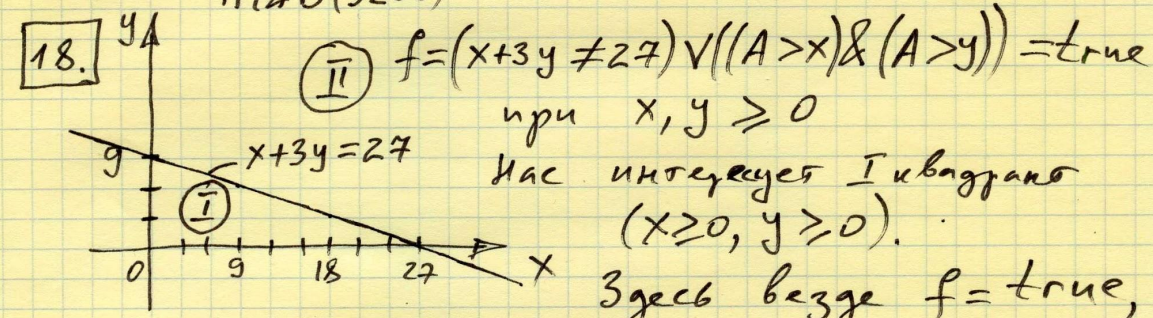 18.
y
II f=(x+3y≠27)∨((A>x)&(A>y))=true
при x, y ⩾ 0
9 x+3y=27
Нас интересует I квадрант
I
(x≥0, y⩾0).
0 9 18 27 x
Здесь везде f=true,